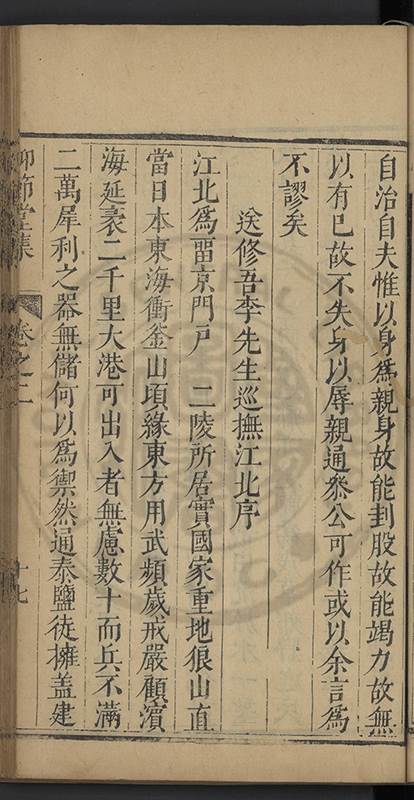 自治自夫惟以身爲親身故能刲股故能竭力故無
以有已故不失身以辱親通叅公可作或以余言爲
不謬矣
送修吾李先生巡撫江北序
江北爲畱京門戶　二陵所居實國家重地狼山直
當日本東海衝釜山頃緣東方用武頻歲戒嚴顧濱
海延袤二千里大港可出入者無慮數十而兵不滿
二萬犀利之器無儲何以爲禦然通泰鹽徒擁盖建
仰節堂集　卷之二　十七